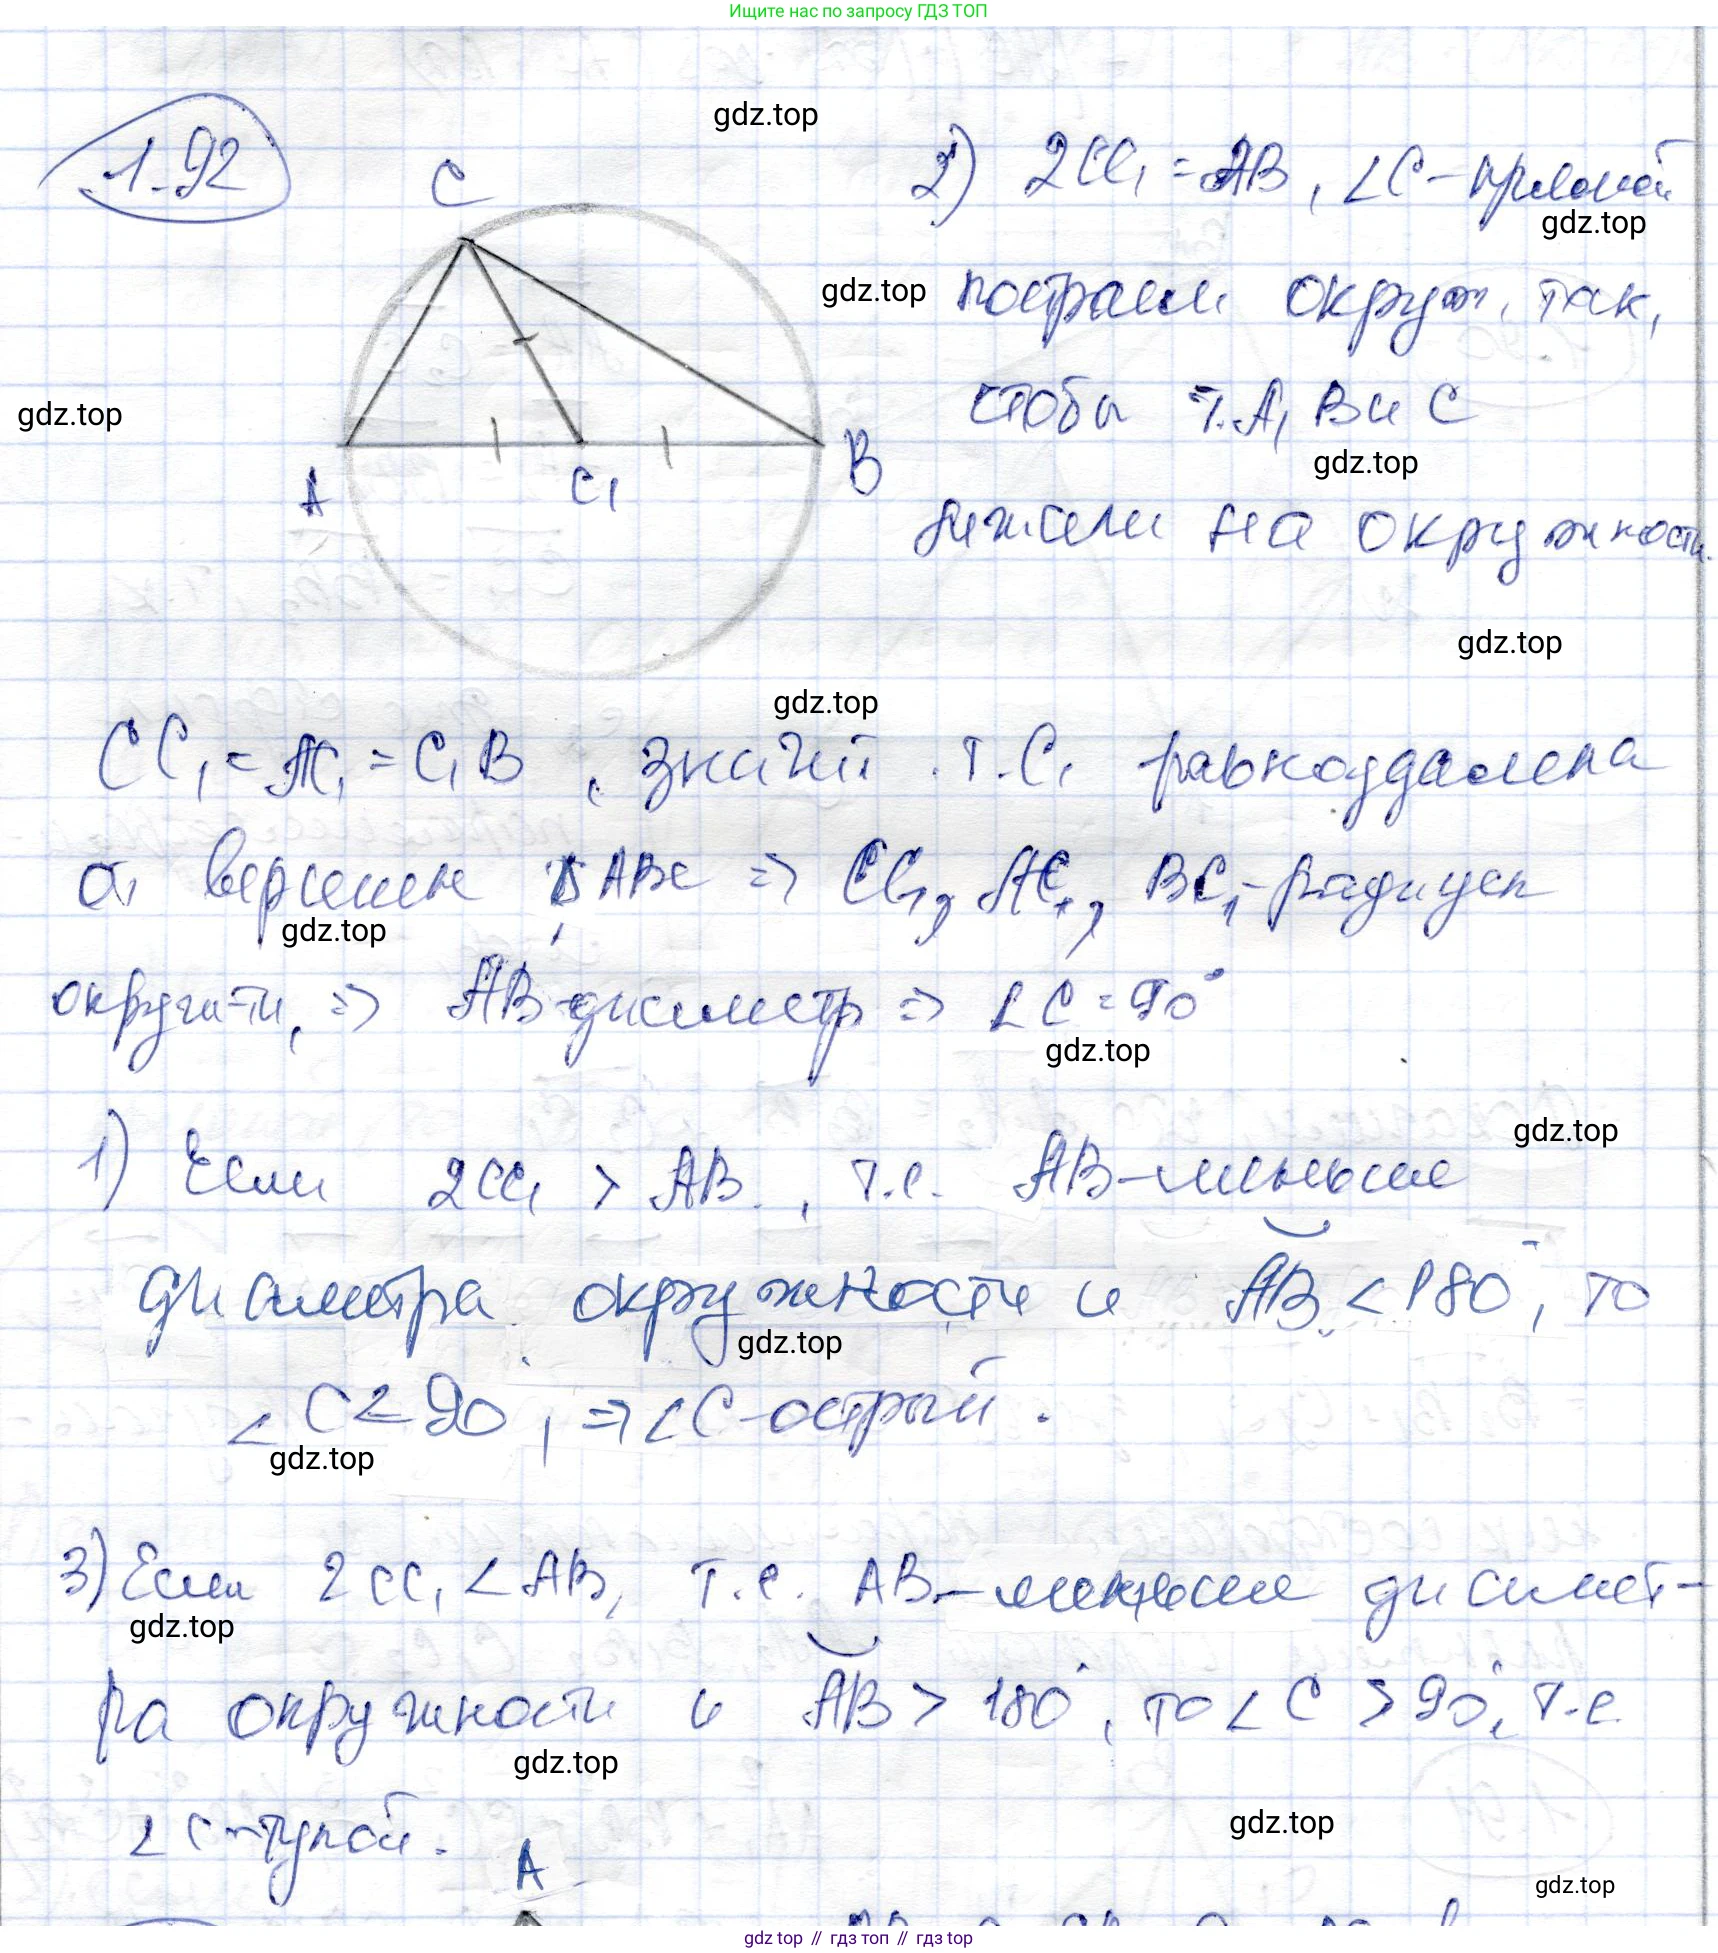 Ищите нас по запросу ГДЗ ТОП
1.92
gdz.top
C
2) 2CC₁ = AB, ∠C – прямой
gdz.top
gdz.top
построим окруж. так,
gdz.top
чтобы т. A, B и C
gdz.top
A
C₁
B
лежали на окружности.
gdz.top
gdz.top
CC₁ = AC₁ = C₁B, значит т. C₁ равноудалена
от вершин Δ ABC ⇒ CC₁, AC₁, BC₁ – радиусы
gdz.top
окруж-ти, ⇒ AB – диаметр ⇒ ∠C = 90°
gdz.top
gdz.top
1) Если 2CC₁ > AB, т.е. AB – меньше
диаметра окружности и ◡AB < 180°, то
gdz.top
∠C < 90, ⇒ ∠C – острый.
gdz.top
3) Если 2CC₁ < AB, т.е. AB – меньше диамет-
gdz.top
ра окружности и ◡AB > 180°, то ∠C > 90°, т.е.
gdz.top
∠C – тупой.
gdz.top
A
gdz.top
gdz top // гдз топ // гдз top